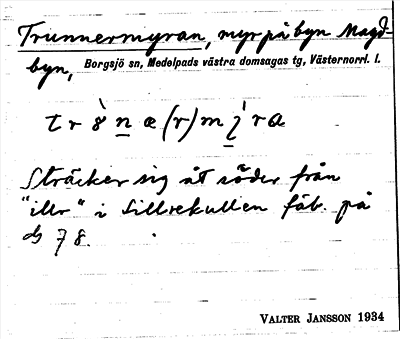 Trunnermyran, myr på byn Magd-
byn, Borgsjö sn, Medelpads västra domsagas tg, Västernorrl. l.
Sträcker sig åt söder från
"illr" i Sillrekullen fäb. på
78.
VALTER JANSSON 1934